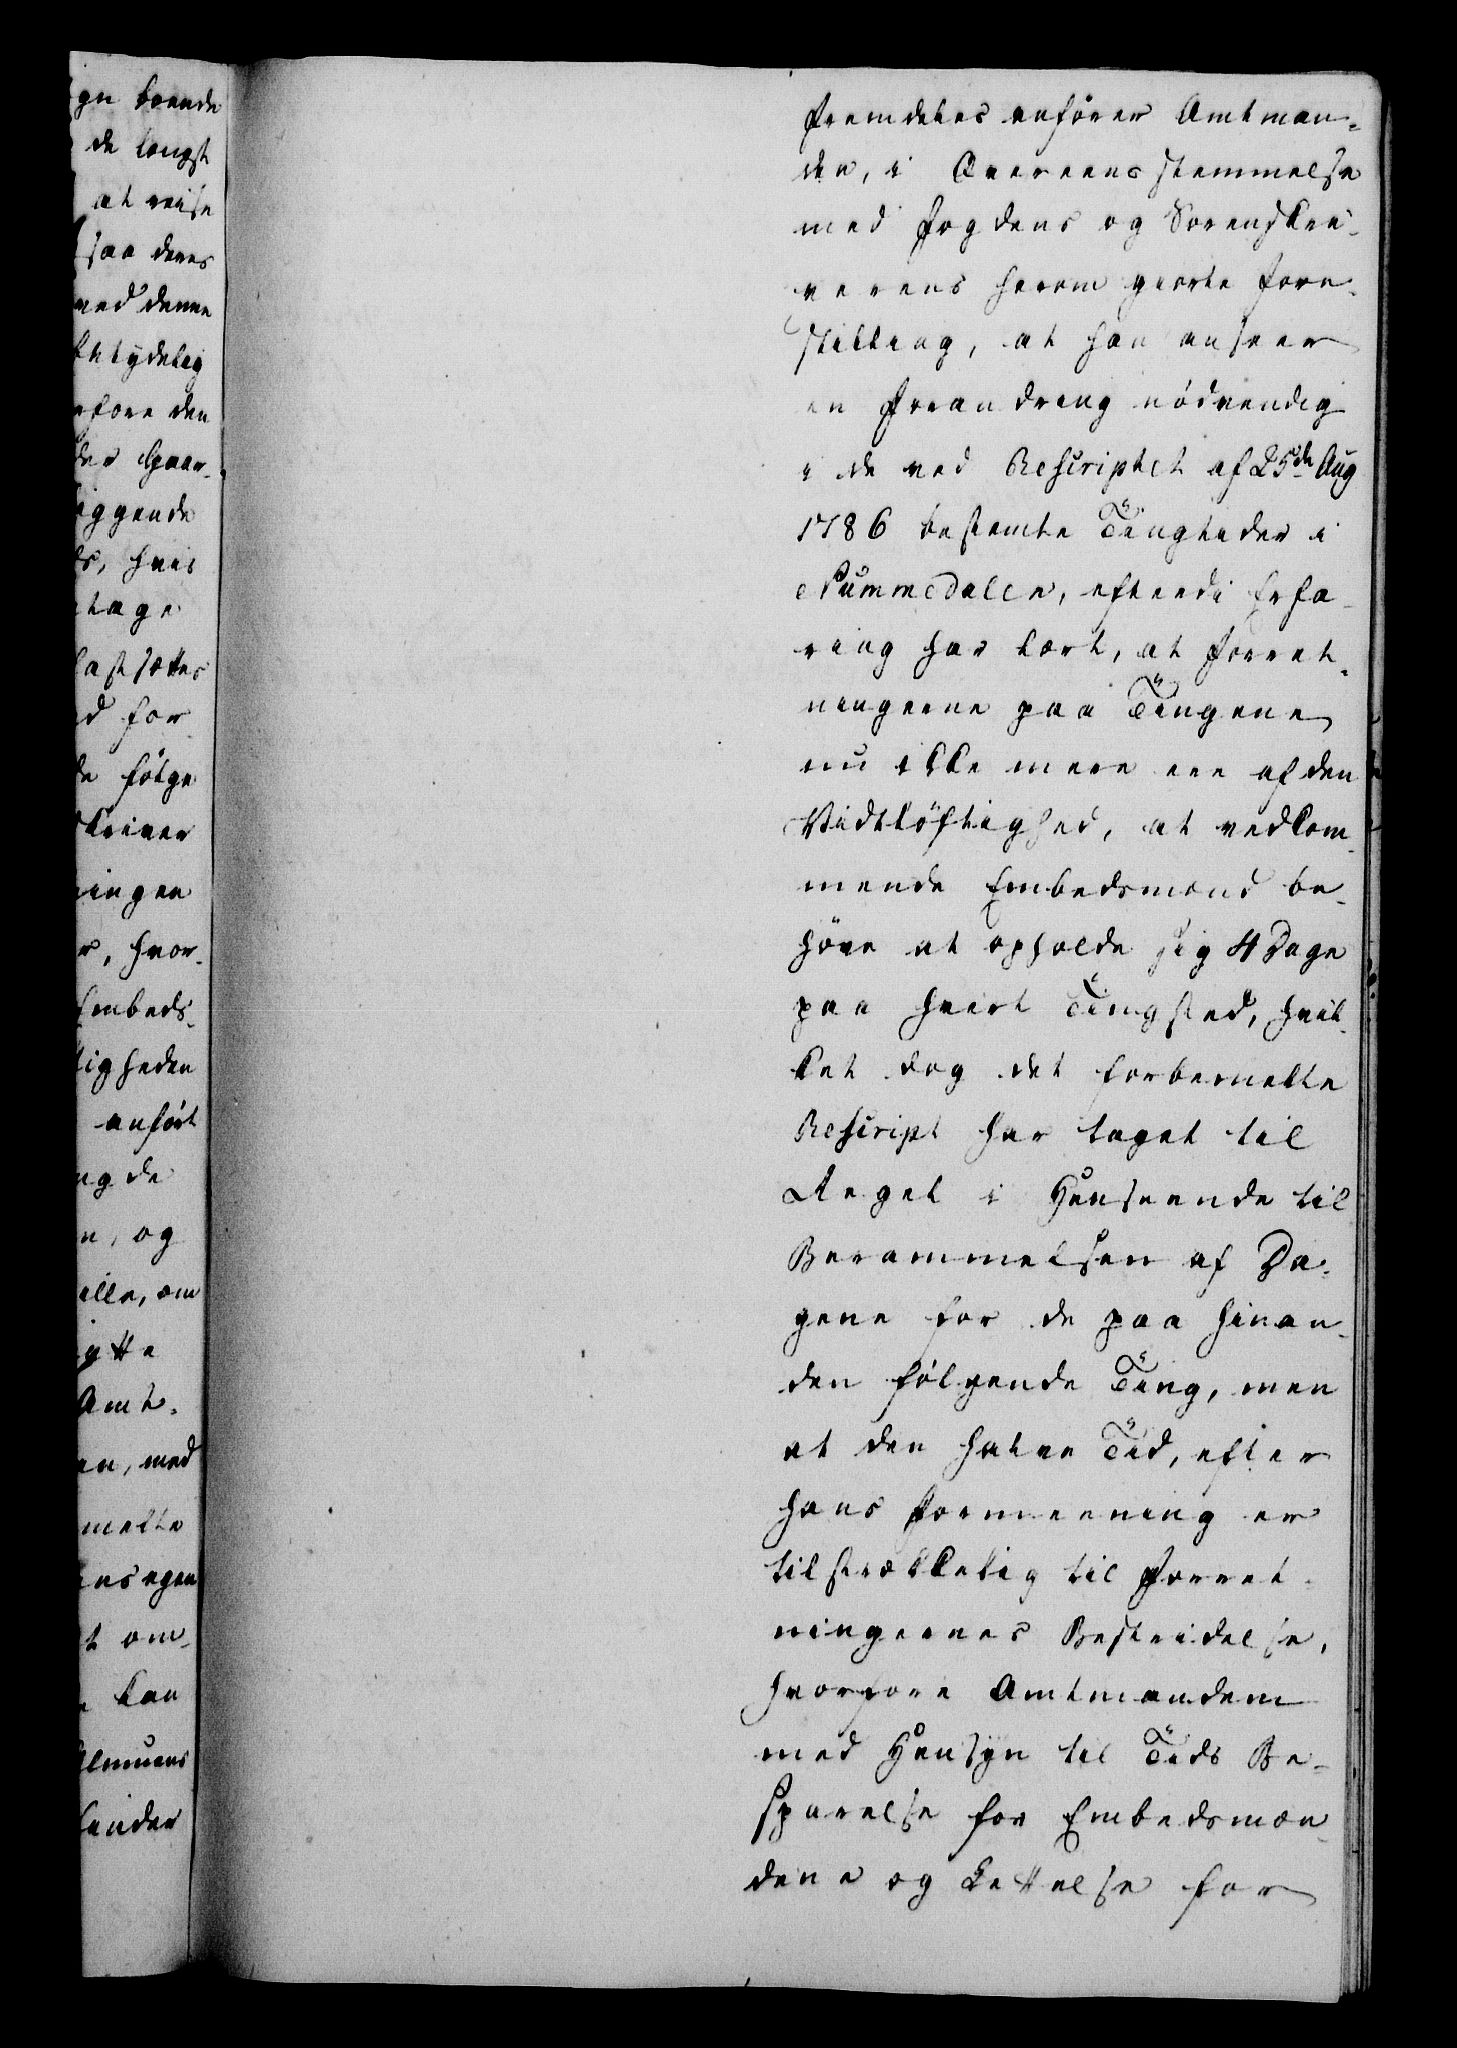 gn boende
de længst
at reise
saa deres
ved denne
betydelig
efore den
der Gaar-
liggende
ds, hvis
tage
fastsættes
d for
de følge
skriver
ningen
r, hvor-
Embeds-
ligheden
anført
ng de
n, og
ille, om
ytte
Amt-
en, med
melte
ens egen
t om-
kan
Almuens
sender
Fremdeles anfører Amtman-
den, i Overeensstemmelse
med Fogdens og Sorenskri-
verens herom giorte Fore-
stilling, at han anseer
en Forandring nødvendig
i de ved Rescriptet af 25de Aug
1786 bestemte Tingtider i
Nummedalen, efterdi Erfa-
ring har lært, at Forret-
ningerne paa Tingene
nu ikke mere ere af den
Vidtløftighed, at vedkom-
mende Embedsmænd be-
høve at opholde sig 4 Dage
paa hvert Tingsted, hvil-
ket dog det forbemelte
Rescript har taget til
Regel i Henseende til
Berammelsen af Da-
gene for de paa hinan-
den følgende Ting, men
at den halve Tid, efter
hans Formeening er
tilstrækkelig til Forret-
ningernes Bestridelse,
hvorfore Amtmanden
med Hensyn til Tids Be-
sparelse for Embedsmæn-
dene og Lettelse for